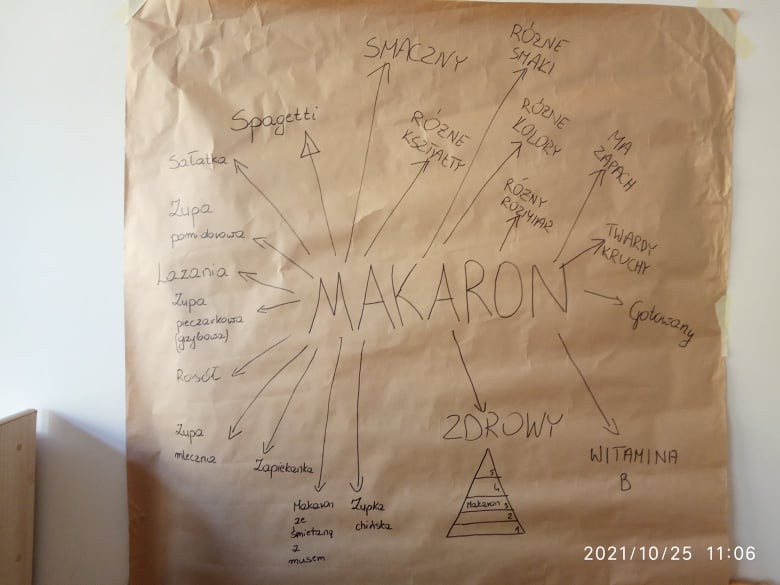 SMACZNY
RÓŻNE
SMAKI
Spagetti
RÓŻNE
KSZTAŁTY
RÓŻNE
KOLORY
MA
ZAPACH
Sałatka
RÓŻNY
ROZMIAR
Zupa
pomidorowa
TWARDY
KRUCHY
Lazania
MAKARON
Zupa
pieczarkowa
(grzybowa)
Gotowany
Rosół
Zupa
mleczna
Zapiekanka
ZDROWY
WITAMINA
B
Makaron
ze
śmietaną
z
musem
Zupka
chińska
5
4
Makaron 3
2
1
2021/10/25 11:06